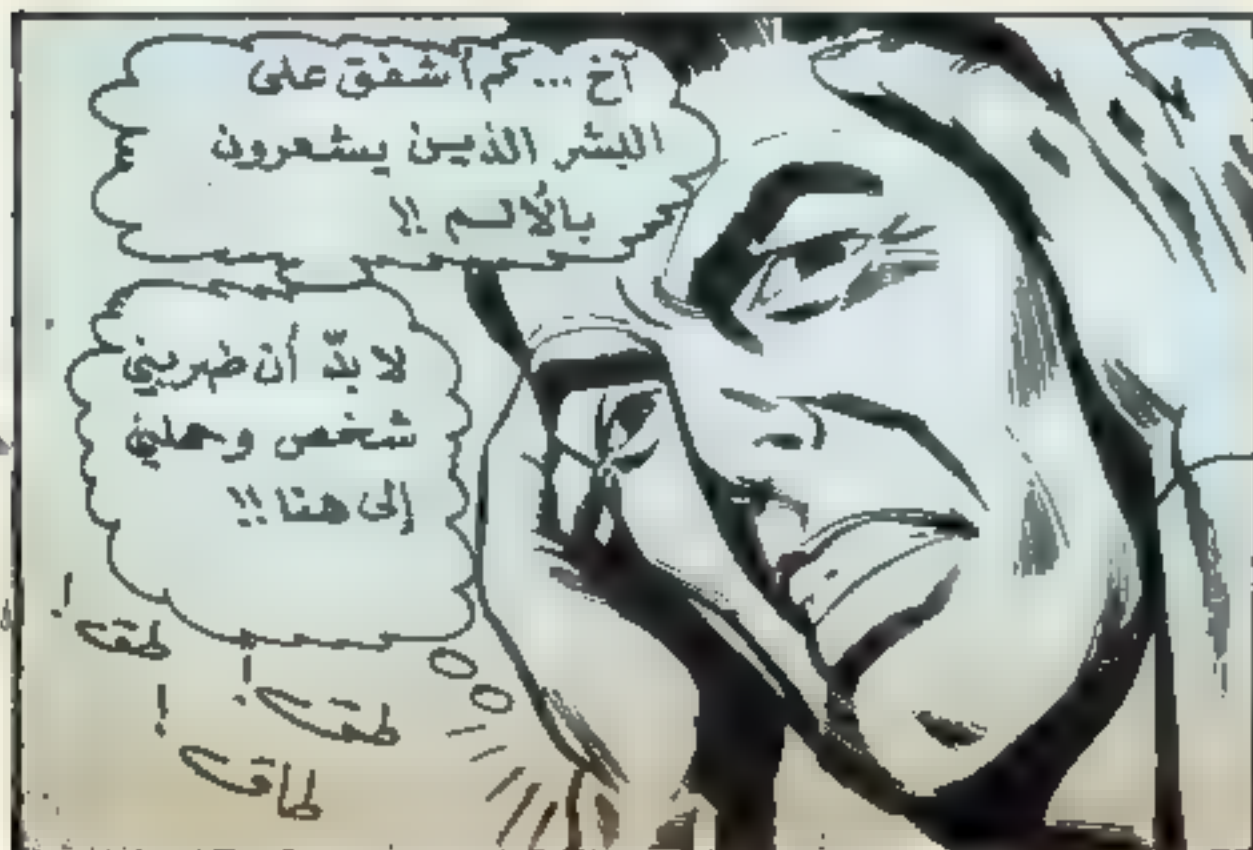 آخ ... كم أشفق على
البشر الذين يشعرون
بالألم !!
لا بدّ أن ضربني
شخص وحملني
إلى هنا !!
طق !
طق !
طاق !